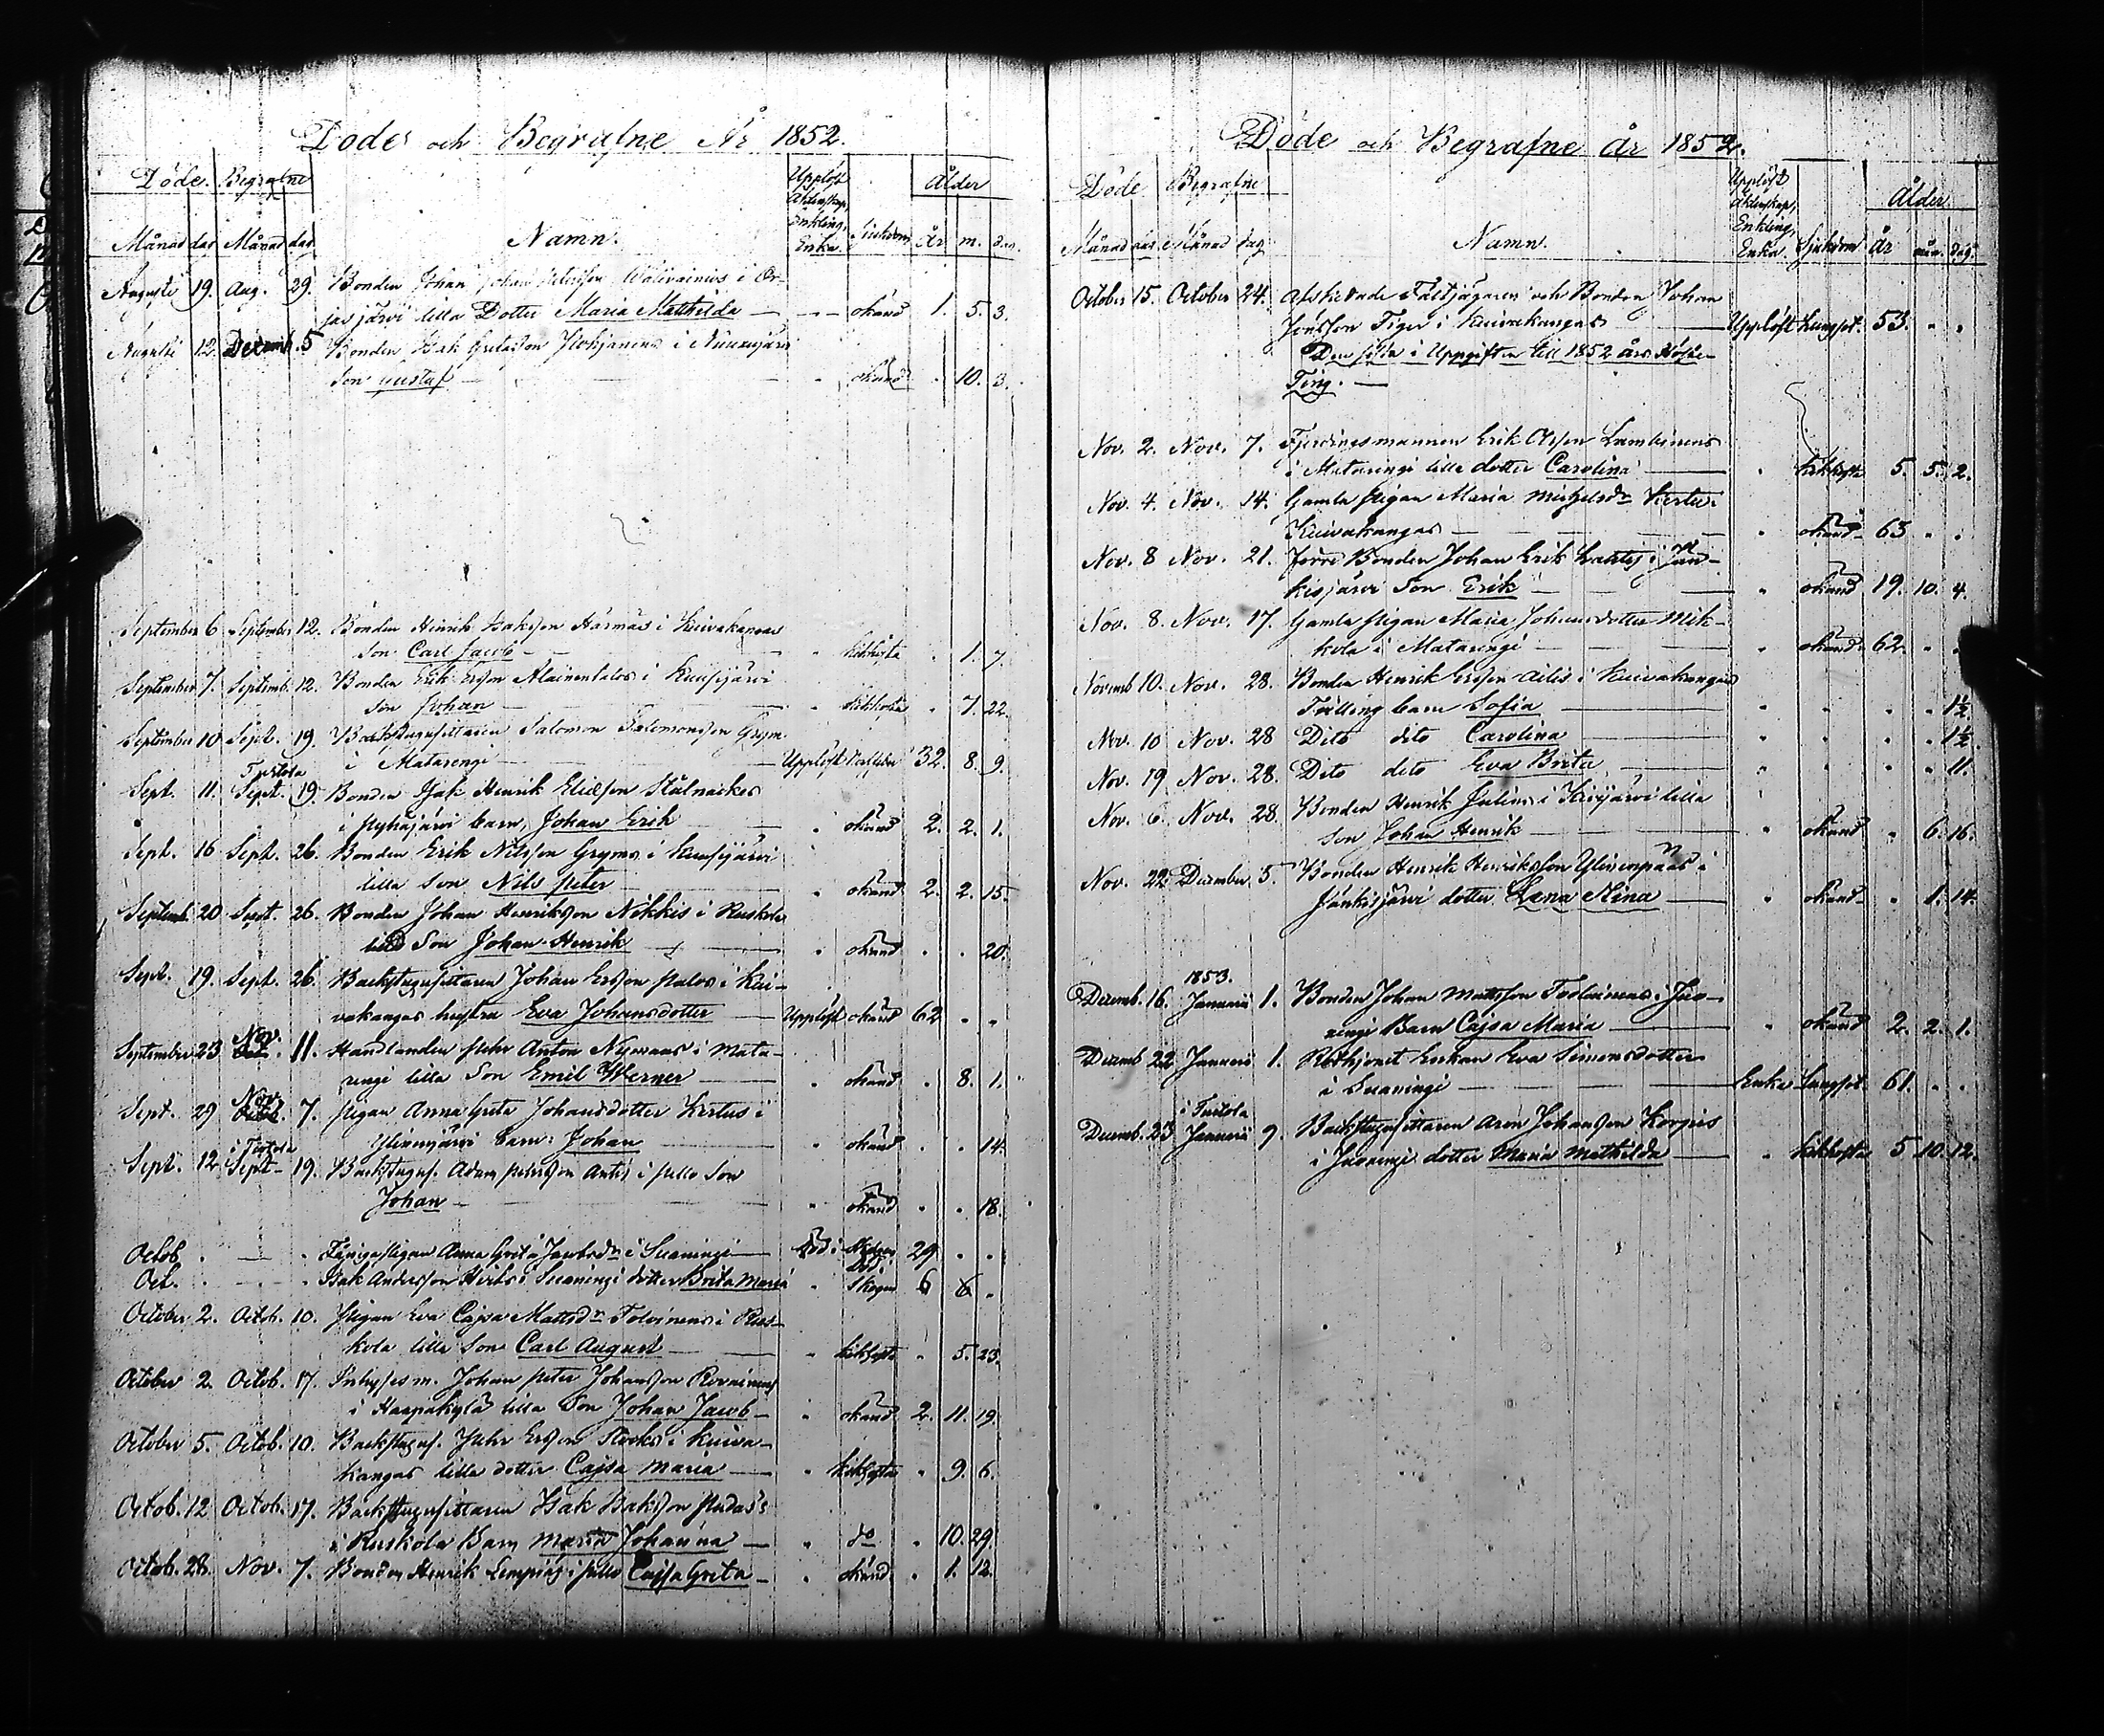 Döde och Begrafne År 1852.
Döde. Begrafne Upplöst Äktenskap, Enkling, Enka. Ålder
Månad dag Månad dag Namn. Sjukdom År m. dag.
Augusti 19. Aug. 29. Bonden Johan Johan Petersson i Or-
jasjärvi lilla Dotter Maria Mathilda — okänd 1. 5. 3.
Augusti 12. Decemb. 5 Bonden Isak i
Son Gustaf — okänd . 10. 3.
September 6 September 12. Bonden Henrik Isaksson Harmas i Kuivakangas
Son Carl Jacob — kikhosta . 1. 7.
September 7. Septemb. 12. Bonden Erik Ersson Alainentalos i Kuusijärvi
Son Johan — kikhosta . 7. 22.
September 10 Sept. 19. Backstugusittaren Salomon Salomonsson Grym
i Matarengi — Upplöst 32. 8. 9.
Turtola
Sept. 11. Sept. 19. Bonden Isak Henrik Eliasson Stålnackes
i Pyhäjärvi barn, Johan Erik — okänd 2. 2. 1.
Sept. 16 Sept. 26. Bonden Erik Nilsson Gryms i Kuusijärvi
lilla Son Nils Peter — okänd 2. 2. 15.
Septemb. 20 Sept. 26. Bonden Johan Henriksson Nikkis i Ruskola
lilla Son Johan Henrik — okänd . . 20.
Sept. 19. Sept. 26. Backstugusittaren Johan Ersson Palos i Kui-
vakangas hustru Eva Johansdotter — Upplöst okänd 62 . .
Nov.
September 23 Oct. 11. Handlanden Pehr Anton Nymans i Mata-
rengi lilla Son Emil Werner — okänd . 8. 1.
Nov.
Sept. 29 Octob. 7. Pigan Anna Greta Johansdotter Kertus i
Ylinenjärvi barn: Johan — okänd . . 14.
i Turtola
Sept. 12. Sept. 19. Backstugus. Adam Petersson Antis i Pello Son
Johan — okänd . . 18.
Octob. . — . Anna Greta Jacobsdr i Suaningi — 29. . .
Oct. . — . Isak Andersson i Suaningi dotter Brita Maria " Skogen 6 6 .
October 2. Octob. 10. Pigan Eva Cajsa Mattsdr Tolvinens i Rus-
kola lilla Son Carl August — " kikhosta . 5. 23.
October 2. Octob. 17. Inhysesm. Johan Peter Johansson
i Haapakylä lilla Son Johan Jacob — okänd 2. 11. 19.
October 5. Octob. 10. Backstugus. Pehr Ersson Stocks i Kuiva-
kangas lilla dotter Cajsa Maria — kikhosta . 9. 6.
Octob. 12 Octob. 17. Backstugusittaren Isak Isaksson Pudas's
i Ruskola Barn Maria Johanna — do . 10. 29.
Octob. 28. Nov. 7. Bonden Henrik i Pello Cajsa Greta — okänd . 1. 12.
Döde och Begrafne År 1852.
Döde Begrafne Upplöst Äktenskap, Enkling, Enka Ålder
Månad dag Månad dag Namn. Sjukdom År mån. dag.
October 15. October 24. Afskedade Fältjägaren och Bonden Johan
Jönsson Tiger i Kuivakangas — Upplöst Lungsot. 53. " "
Den sista i Uppgiften till 1852 års Höste-
Ting. —
Nov. 2. Nov. 7. Fjerdingsmannen Erik Olsson
i Matarengi lilla dotter Carolina — " kikhosta 5. 5. 2.
Nov. 4. Nov. 14. Gamla Pigan Maria Michelsdr Kertu.
Kuivakangas — " okänd 63 . .
Nov. 8 Nov. 21. förre Bonden Johan Erik Lantis i Jän-
kisjärvi Son Erik — " okänd 19. 10. 4.
Nov. 8. Nov. 17. Gamla Pigan Maria Johansdotter Mik-
kola i Matarengi — " okänd 62. . .
Novemb 10. Nov. 28. Bonden Henrik Ersson Ailis i Kuivakangas
Trilling barn Sofia — " " . . 1½
Nov. 10 Nov. 28 Dito dito Carolina — " " . . 1½
Nov. 19 Nov. 28. Dito dito Eva Brita — " " . . 11.
Nov. 6. Nov. 28. Bonden Henrik Julius i lilla
Son Johan Henrik — " okänd . 6. 16.
Nov. 22. December 5. Bonden Henrik Henriksson Ylinenpääs i
Jänkisjärvi dotter Lena Stina — " okänd . 1. 14.
1853.
Decemb. 16. Januarii 1. Bonden Johan Mattsson Tolvinens i Juo-
xengi Barn Cajsa Maria — " okänd 2. 2. 1.
Decemb 22 Januarii 1. Rothjonet Enkan Eva Simonsdotter
i Suaningi — Enka Lungsot 61. . .
i Turtola
Decemb. 23 Januarii 9. Backstugusittaren Aron Johansson Korpis
i Juoxengi dotter Maria Mathilda — " kikhosta 5 10. 12.